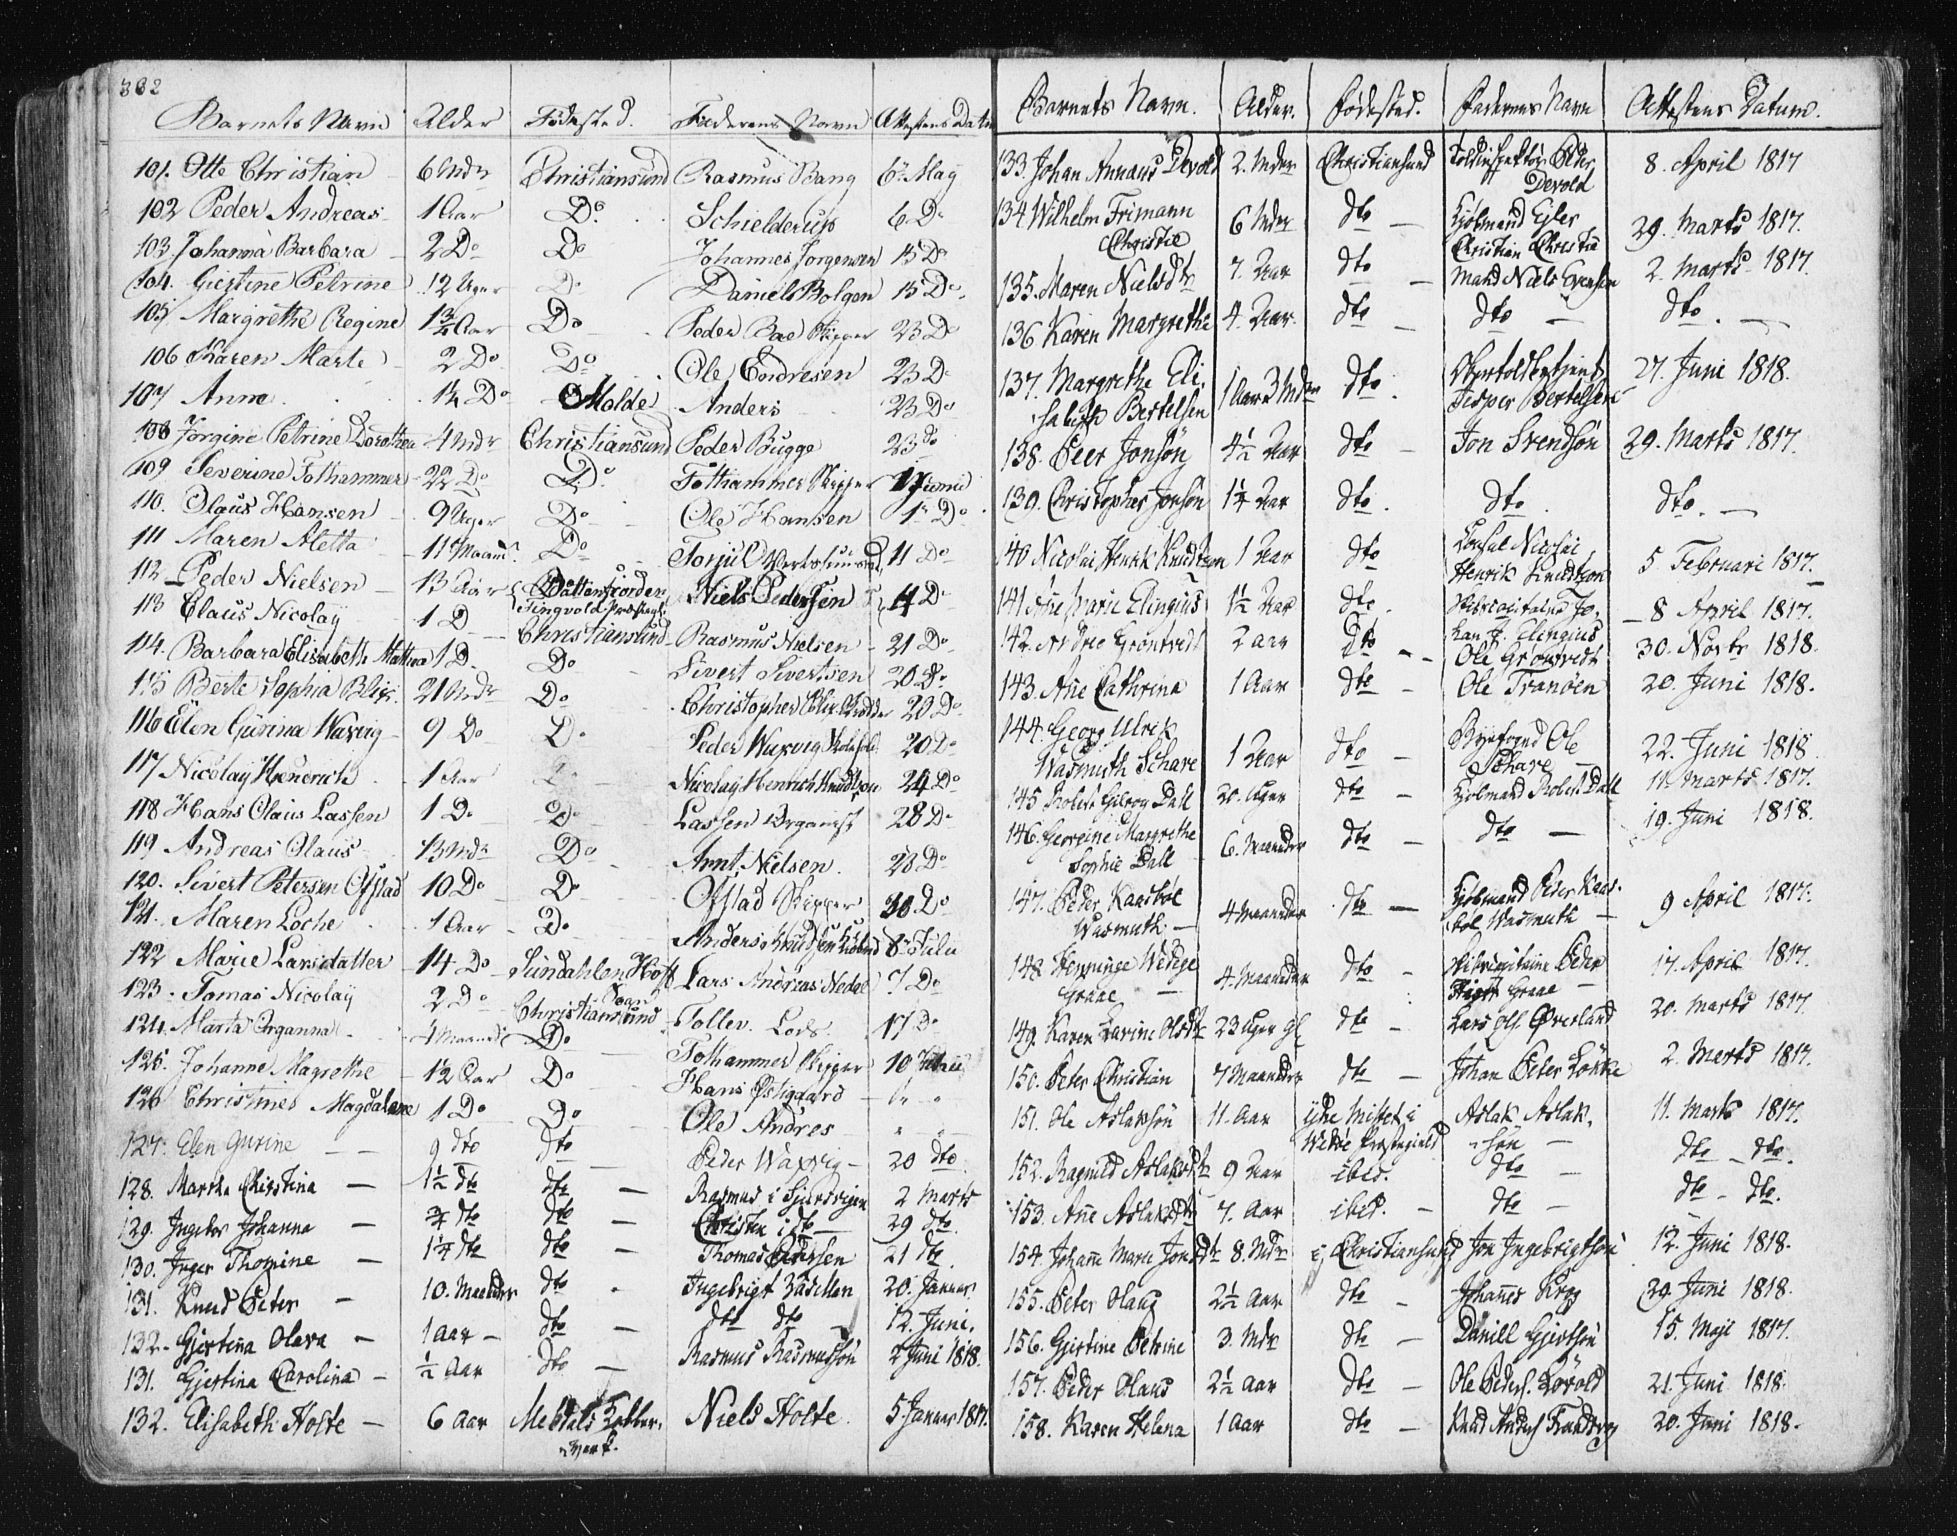 332
Barnets Navn Alder Fødested. Faderens Navn Attestens Datum
101. Otte Christian 6 Mdr Christiansund Rasmus Bang 6te May
102 Peder Andreas 1 Aar Do. Schielderup 6 Do
103 Johanna Barbara 2 Do Do Johannes Jørgensen 15 Do
104. Giertine Petrine 12 Uger Do Daniel Bolgen 15 Do.
105 Margrethe Regine 1¾ Aar Do Peder Bae Skipper 23 Do
106 Karen Marte 2 Do Do Ole Endresen 23 Do
107 Anne 1¼ Do Molde Anders 23 Do
108 Jørgine Petrine Dorothea 4 Mdr Christiansund Peder Bugge 23 Do
109 Severine Tothammer 22 Do Do Tothammer Skipper 1 Junii
110. Olaus Hansen 9 Uger Do Ole Hansen 1te Do
111 Maren Aletta 11 Maan. Do Torjul 11 Do
112 Peder Nielsen 13 Aar Battenfiorden Tingvold Præstegl. Niels Pedersen 14 Do
113 Claus Nicolay 1 D Christiansund Rasmus Nielsen 21 Do
114. Barbara Elisabeth Mathea 1 D. Do Sivert Sivertsen 20 Do
115 Berte Sophia Blix 21 Mdr Do Christopher Blix 20 Do
116 Elen Gurina Waxvig 9 Do Do Peder Waxvig 20 Do
117 Nicolay Henerich 1 Aar Do Nicolay Henrich Knudtzon 24 Do
118 Hans Olaus Lassen 1 Do Do Lassen Organist 28 Do
119 Andreas Olaus 13 Mdr Do Arnt Nielsen 28 Do
120. Sivert Petersen Ofstad 10 Do Do Ofstad Skipper 30 Do
121. Maren Loche 1 Aar Do Anders Knudsen 6te Julii
122 Marie Larsdatter 14 Do Sundahlen Hoff Sogn Lars Andreas Nedal 7 Do
123. Tomas Nicolay 2 Do Christiansund Tollev. Lods 17 Do
124. Marta Organna 4 Maand. Do Tothammer Skipper 10
125. Johanne Magrethe 1½ Aar Do Hans Østigaard
126 Christines Magdalene 1 Do Do Ole Andres
127. Elen Gurine 9 dto dto Peder Waxvig 20 dto
128. Martha Christina 1½ dto dto Rasmus i 2 Marts
129. Ingebor Johanna ¾ dto dto Christen i dto 29 dto.
130. Inger Thomine 1¼ dto dto Thomas 21 dto
131. Knud Peter 10. Maander dto Ingebrigt 20. Januar
132. Gjertina Oleva 1 Aar dto dto dto 12. Juni.
131. Gjertina Carolina ½ Aar dto Rasmus Rasmussön 2 Juni 1818.
132. Elisabeth Holte 6 Aar Meldals Kobber, værk. Niels Holte 5 Januar 1817.
Barnets Navn. Alder. Fødested. Faderens Navn Attestens Datum.
133. Johan Annæus Devold 2. Mdr Christianssund Toldinspektør Peter Devold 8. April 1817
134 Wilhelm Frimann Christie 6 Mdr dto Kjøbmand Ejler Christian Christie 29. Marts 1817.
135. Maren Nielsdtr 7. Aar dto Mand Niels Evensen 2. Marts 1817.
136 Karen Margrethe 4. Aar dto dto dto.
137. Margrethe Elisabeth Bertelsen 1 Aar 3 Mdr dto Jesper Bertelsen 27. Juni 1818.
138. Peer Jonsön 4½ Aar dto Jon Svendsön 29. Marts 1817.
139. Christopher Jonsön 1¼ Aar dto. dto. dto.
140 Nicolai Henrik Knudtzon 1 Aar dto Consul Nicolai Henrik Knudtzon 5 Februari 1817.
141 Ane Marie Elingius 1½ Aar dto. Skibscapitaine Johan F. Elingius 8 April 1817.
142. Grøntvedt 2 Aar dto Ole Grøntvedt 30. Novbr 1818.
143. Ane Cathrina 1 Aar dto Ole Tranöen 20. Juni 1818.
144. Georg Ulrik Wasmuth Schare 1 Aar dto Byefoged Ole Schare 22. Juni 1818
145 Robert Gilroy Dall 20. Uger dto Kjøbmand Robert Dall 11. Marts 1817.
146. Georgine Margrethe Sophie Dall 6. Maander dto dto 19. Juni 1818.
147. Peder Kaasböl Wasmuth 4 Maander dto Kjøbmand Peter Kaasböl Wasmuth 9 April 1817.
148. Henninge Wedege Graae 4. Maander dto Skibscapitaine Peder Graae 17. April 1817.
149. Karen Larine Olsdtr 23 Uger gl dto Lars Ols. Överland 20. Marts 1817.
150. Peter Christian 7 Maander dto Johan Peter Lökke 2. Marts 1817.
151. Ole Aslaksön 11. Aar Præstegield Aslak Aslaksön 11. Marts 1817.
152. Ragnild Aslaksdtr 9 Aar ibid. dto dto dto.
153. Ane Aslaksdtr 7. Aar ibid. dto dto dto.
154. Johane Marie Jonsdtr 8. Mdr i Christianssund Jon Ingebrigtsön 12. Juni 1818.
155. Peter Olaus 2½ Aar dto Johanes 29. Juni 1818.
156. Gjertine Petrine 3. Mdr dto Daniell Gjertsön 15. Maji 1817.
157. Peder Olaus 2½ Aar dto Ole Peders. 21. Juni 1818.
158. Karen Helena 1 Aar dto Knud Anders 20. Juni 1818.